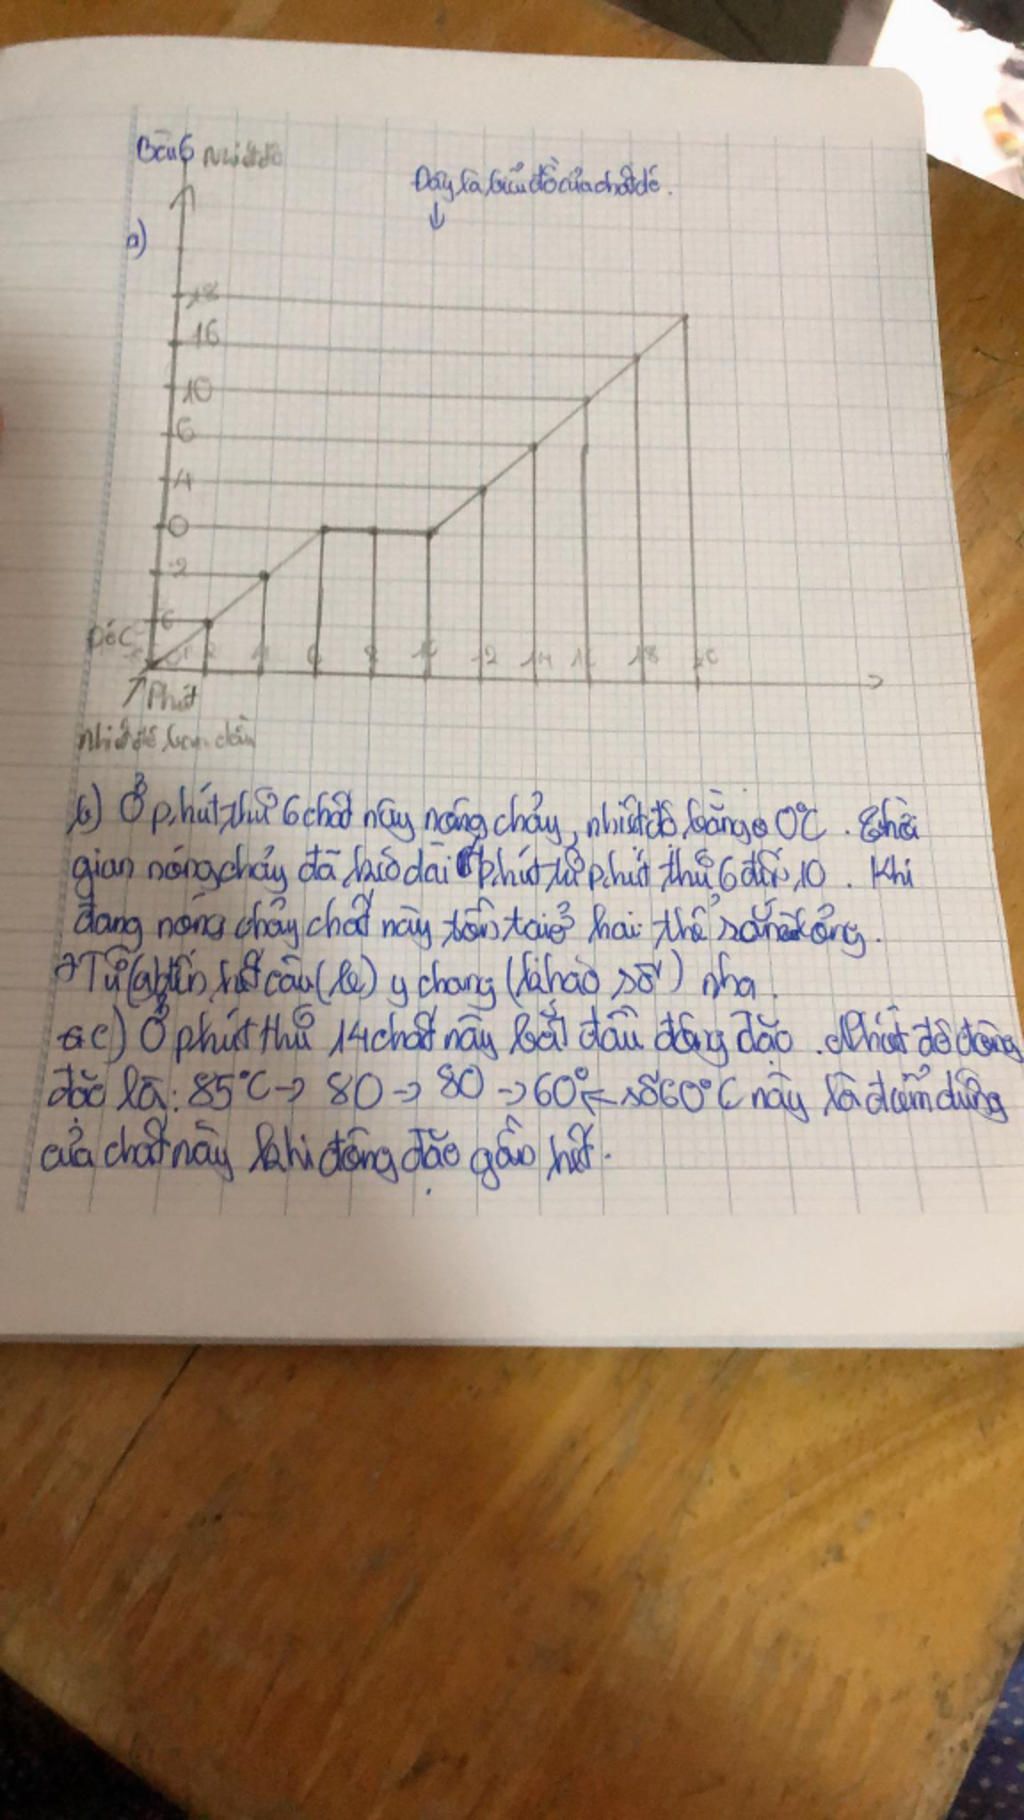 Câu 6 Nhiệt độ
Đây là biểu đồ của chất đó.
↓
a)
18
16
10
6
4
0
-2
-6
Độ C
2 4 6 8 10 12 14 16 18 20
Phút
nhiệt độ ban đầu
b) Ở phút thứ 6 chất này nóng chảy, nhiệt độ bằng 0°C. Thời
gian nóng chảy đã kéo dài phút từ phút thứ 6 đến 10. Khi
đang nóng chảy chất này tồn tại ở hai thể rắn lỏng.
Từ (a) đến hết câu (b) y chang (khác số) nha.
c) Ở phút thứ 14 chất này bắt đầu đông đặc. Nhiệt độ đông
đặc là: 85°C → 80 → 80 → 60° ← số 60°C này là điểm dừng
của chất này khi đông đặc gần hết.